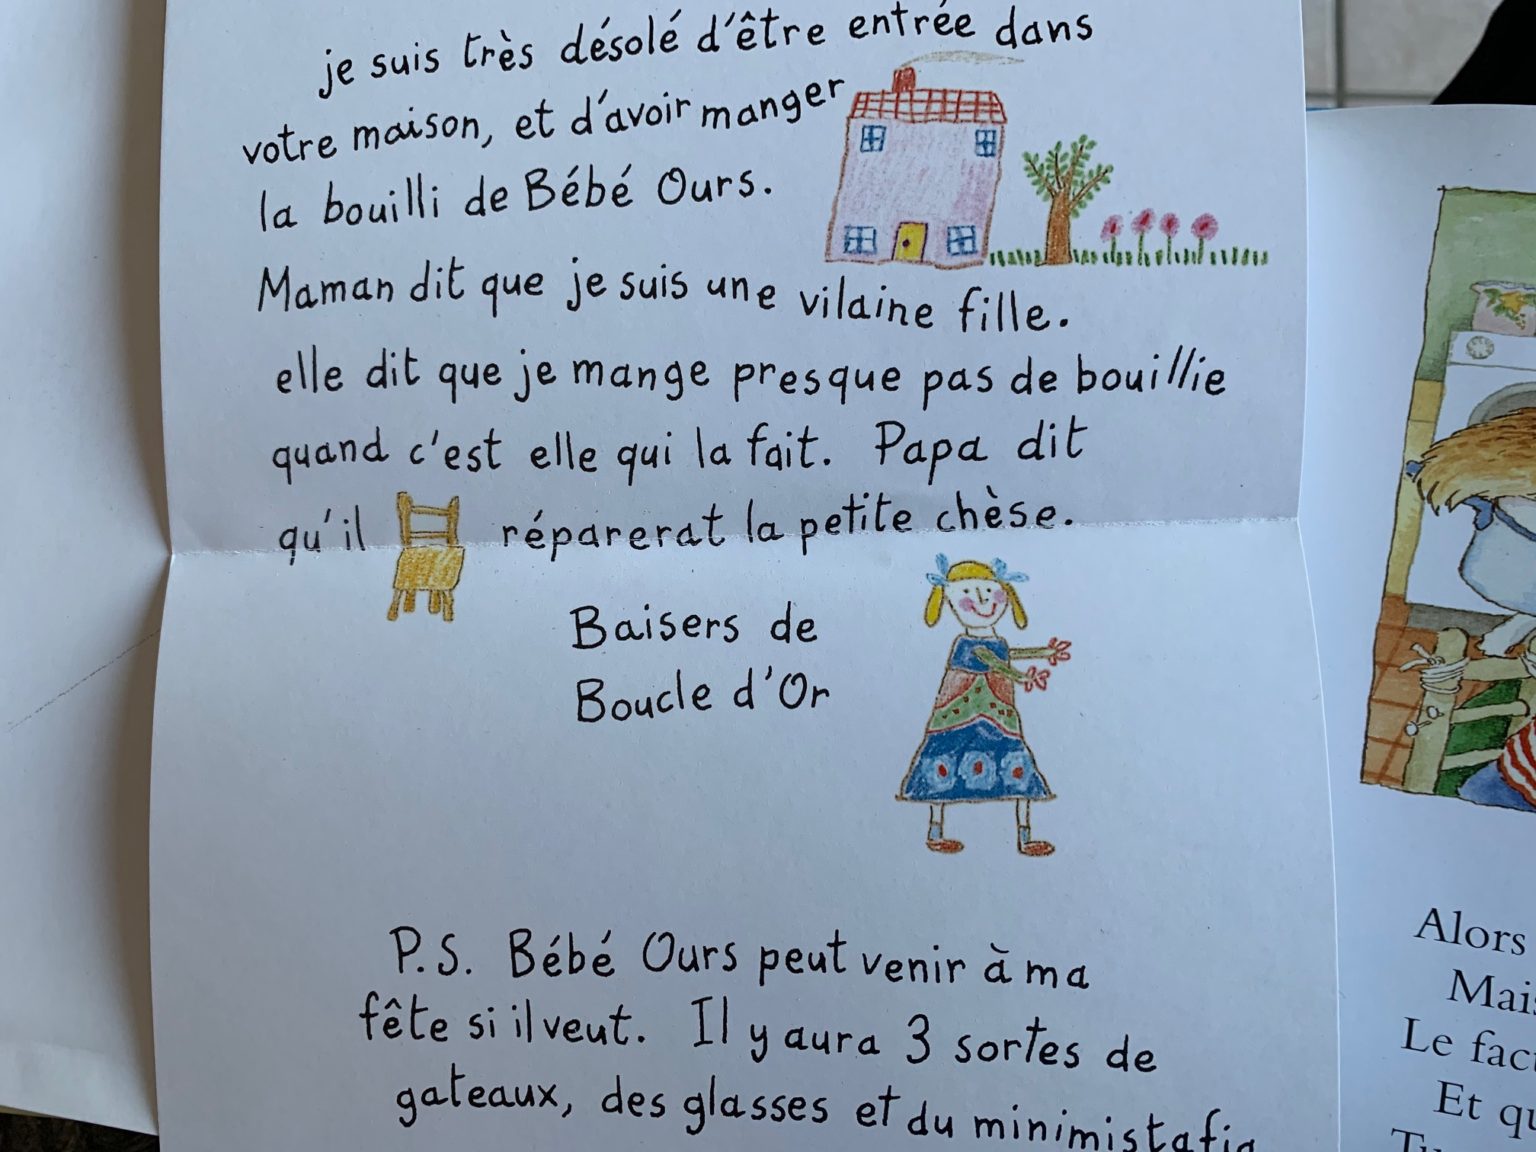 je suis très désolé d'être entrée dans
votre maison, et d'avoir manger
la bouilli de Bébé Ours.
Maman dit que je suis une vilaine fille.
elle dit que je mange presque pas de bouillie
quand c'est elle qui la fait. Papa dit
qu'il réparerat la petite chèse.
Baisers de
Boucle d'Or
P.S. Bébé Ours peut venir à ma
fête si il veut. Il y aura 3 sortes de
gateaux, des glasses et du minimistafig
Alors
Mais
Le fact
Et qu